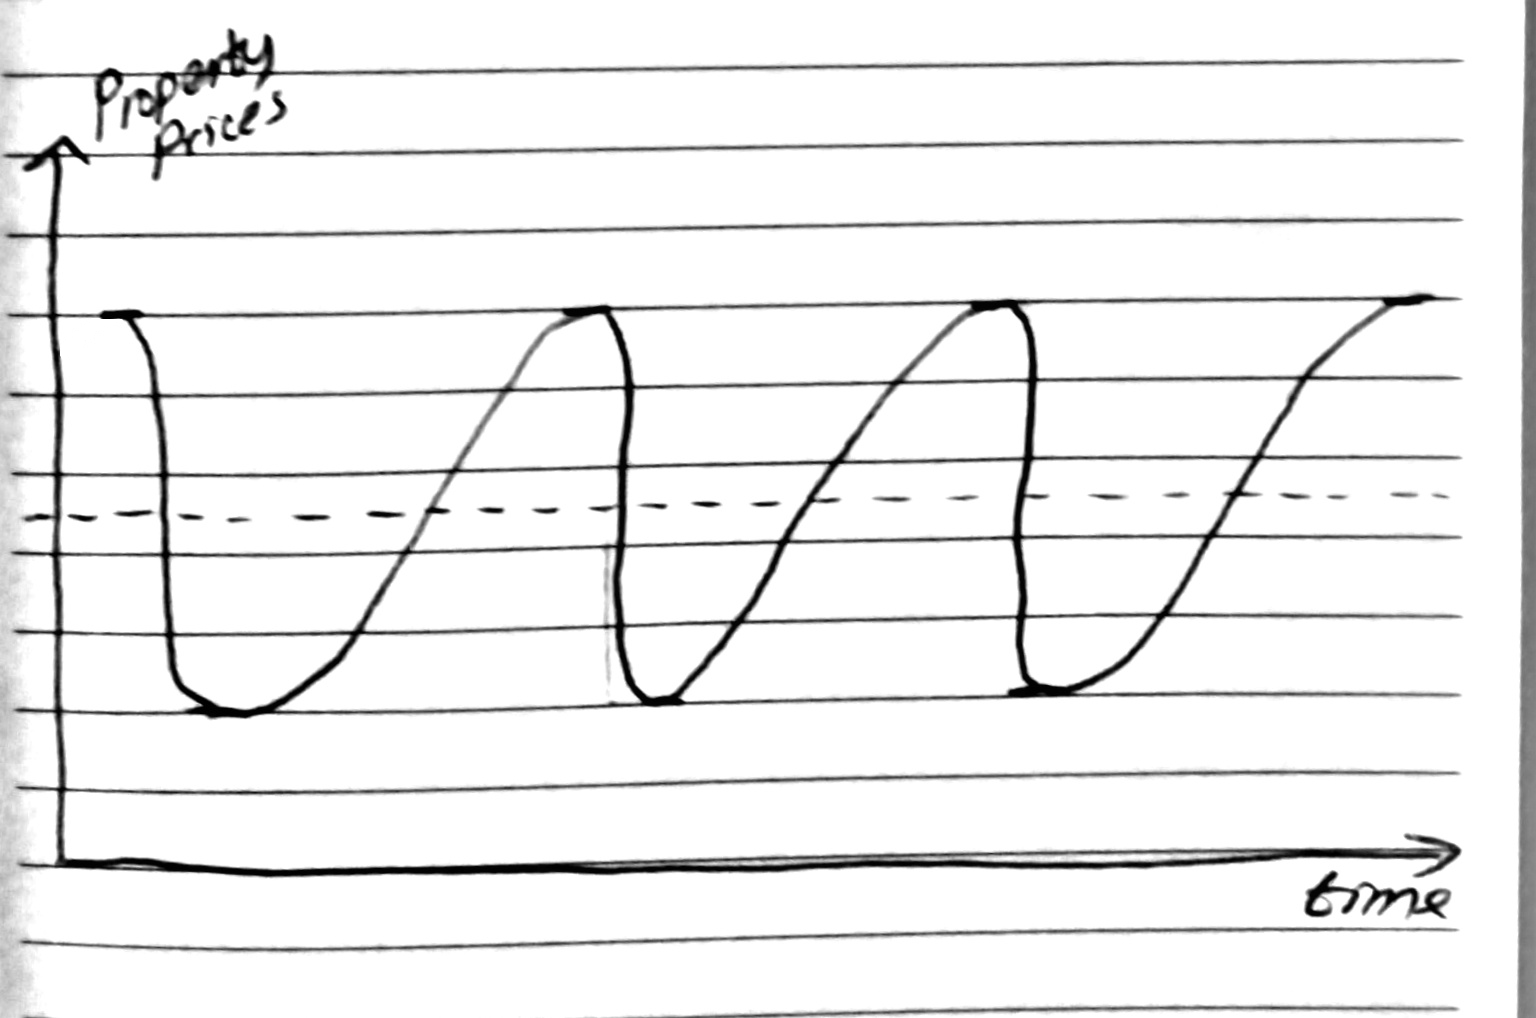 Property
Prices
time